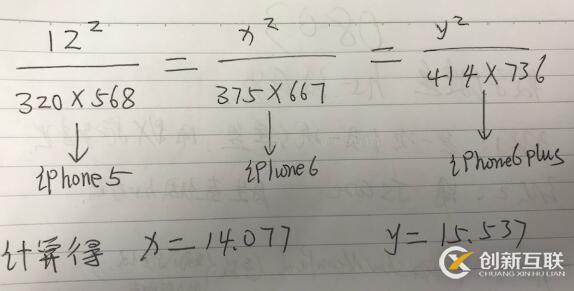 12² / 320×568 = x² / 375×667 = y² / 414×736
iPhone5 iPhone6 iPhone6plus
计算得 x=14.077 y=15.537
创新互联
CHUANG XIN HU LIAN